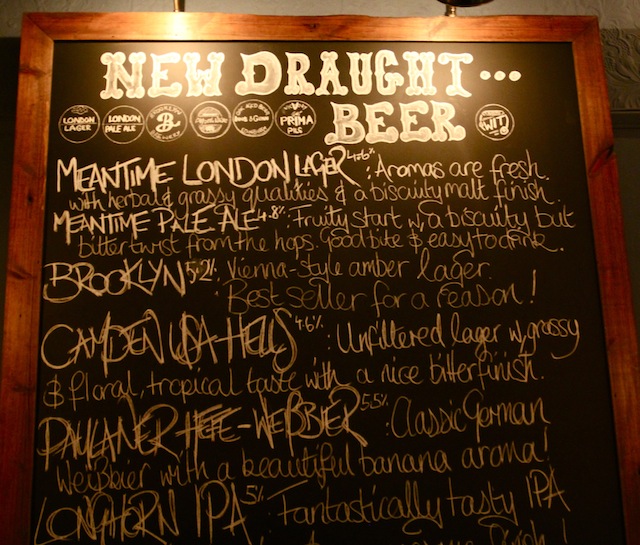 NEW DRAUGHT...
LONDON LAGER
LONDON PALE ALE
BROOKLYN B
PRIMA PILS
BEER
WIT
MEANTIME LONDON LAGER 4.6% : Aromas are fresh.
with herbal & grassy qualities & a biscuity malt finish.
MEANTIME PALE ALE 4.8% : Fruity start w, a biscuity but
bitter twist from the hops. Good bite & easy to drink.
BROOKLYN 5.2% : Vienna-style amber lager.
Best seller for a reason!
CAMDEN USA HELLS 4.6% : Unfiltered lager w, grassy
& floral, tropical taste with a nice bitter finish.
PAULANER HEFE-WEIßBIER 5.5% : Classic German
Weißbier with a beautiful banana aroma!
LONGHORN IPA 5% : Fantastically tasty IPA